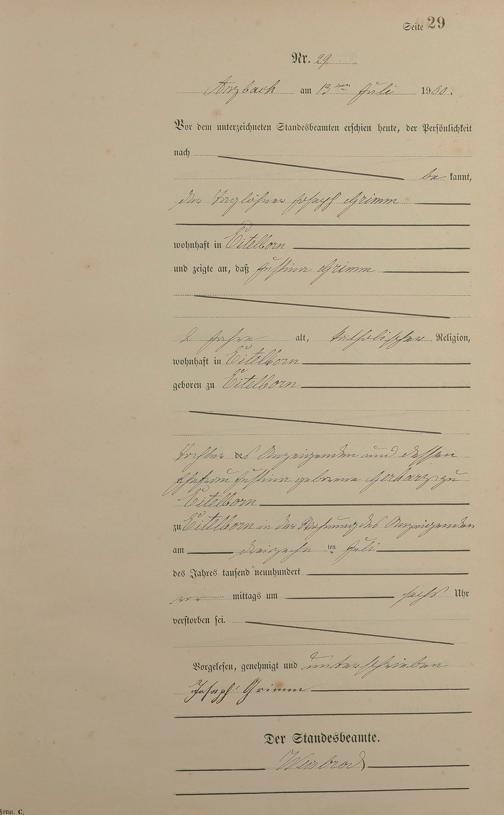 Seite 29
Nr. 29
Arzbach am 13ten Juli 1900.
Vor dem unterzeichneten Standesbeamten erschien heute, der Persönlichkeit
nach
be kannt,
der Taglöhner Joseph Grimm
wohnhaft in Eitelborn
und zeigte an, daß Justina Grimm
2 Jahre alt, katholischer Religion,
wohnhaft in Eitelborn
geboren zu Eitelborn
Tochter des Anzeigenden und dessen
Ehefrau Justina geborene Gerharz zu
Eitelborn
zu Eitelborn in der Wohnung des Anzeigenden
am dreizehn ten Juli
des Jahres tausend neunhundert
vor mittags um sechs Uhr
verstorben sei.
Vorgelesen, genehmigt und unterschrieben
Joseph Grimm
Der Standesbeamte.
Form. C.